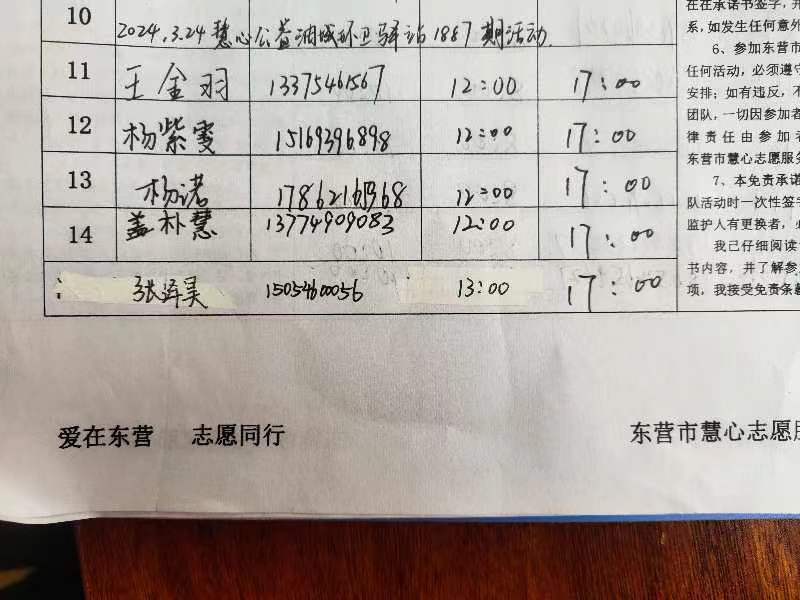 10
2024.3.24 慧心公益油城环卫驿站1887期活动.
11 王金羽 13375461567 12:00 17:00
12 杨紫雯 15169396898 12:00 17:00
13 杨诺 12:00 17:00
14 盖朴慧 13774909083 12:00 17:00
张泽昊 15054600056 13:00 17:00
在在承诺书签字，并
系，如发生任何意外
6、参加东营市
任何活动，必须遵守
安排；如有违反，不
团队，一切因参加者
律责任由参加者
东营市慧心志愿服务
7、本免责承诺
队活动时一次性签字
监护人有更换者，必
我已仔细阅读
书内容，并了解参
项，我接受免责条款
爱在东营 志愿同行
东营市慧心志愿服